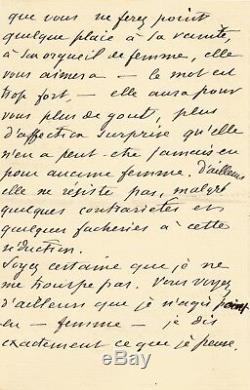 que vous ne ferez point
quelque place à sa vanité,
à son orgueil de femme, elle
vous aimera — le mot est
trop fort, — elle aura pour
vous plus de goût, plus
d'affection surprise qu'elle
n'en a peut-être jamais eu
pour aucune femme. D'ailleurs
elle ne résiste pas, malgré
quelques contrariétés et
quelques fâcheries à cette
séduction.
Soyez certaine que je ne
me trompe pas. Vous voyez
d'ailleurs que je n'agis point
en — femme — je dis
exactement ce que je pense.